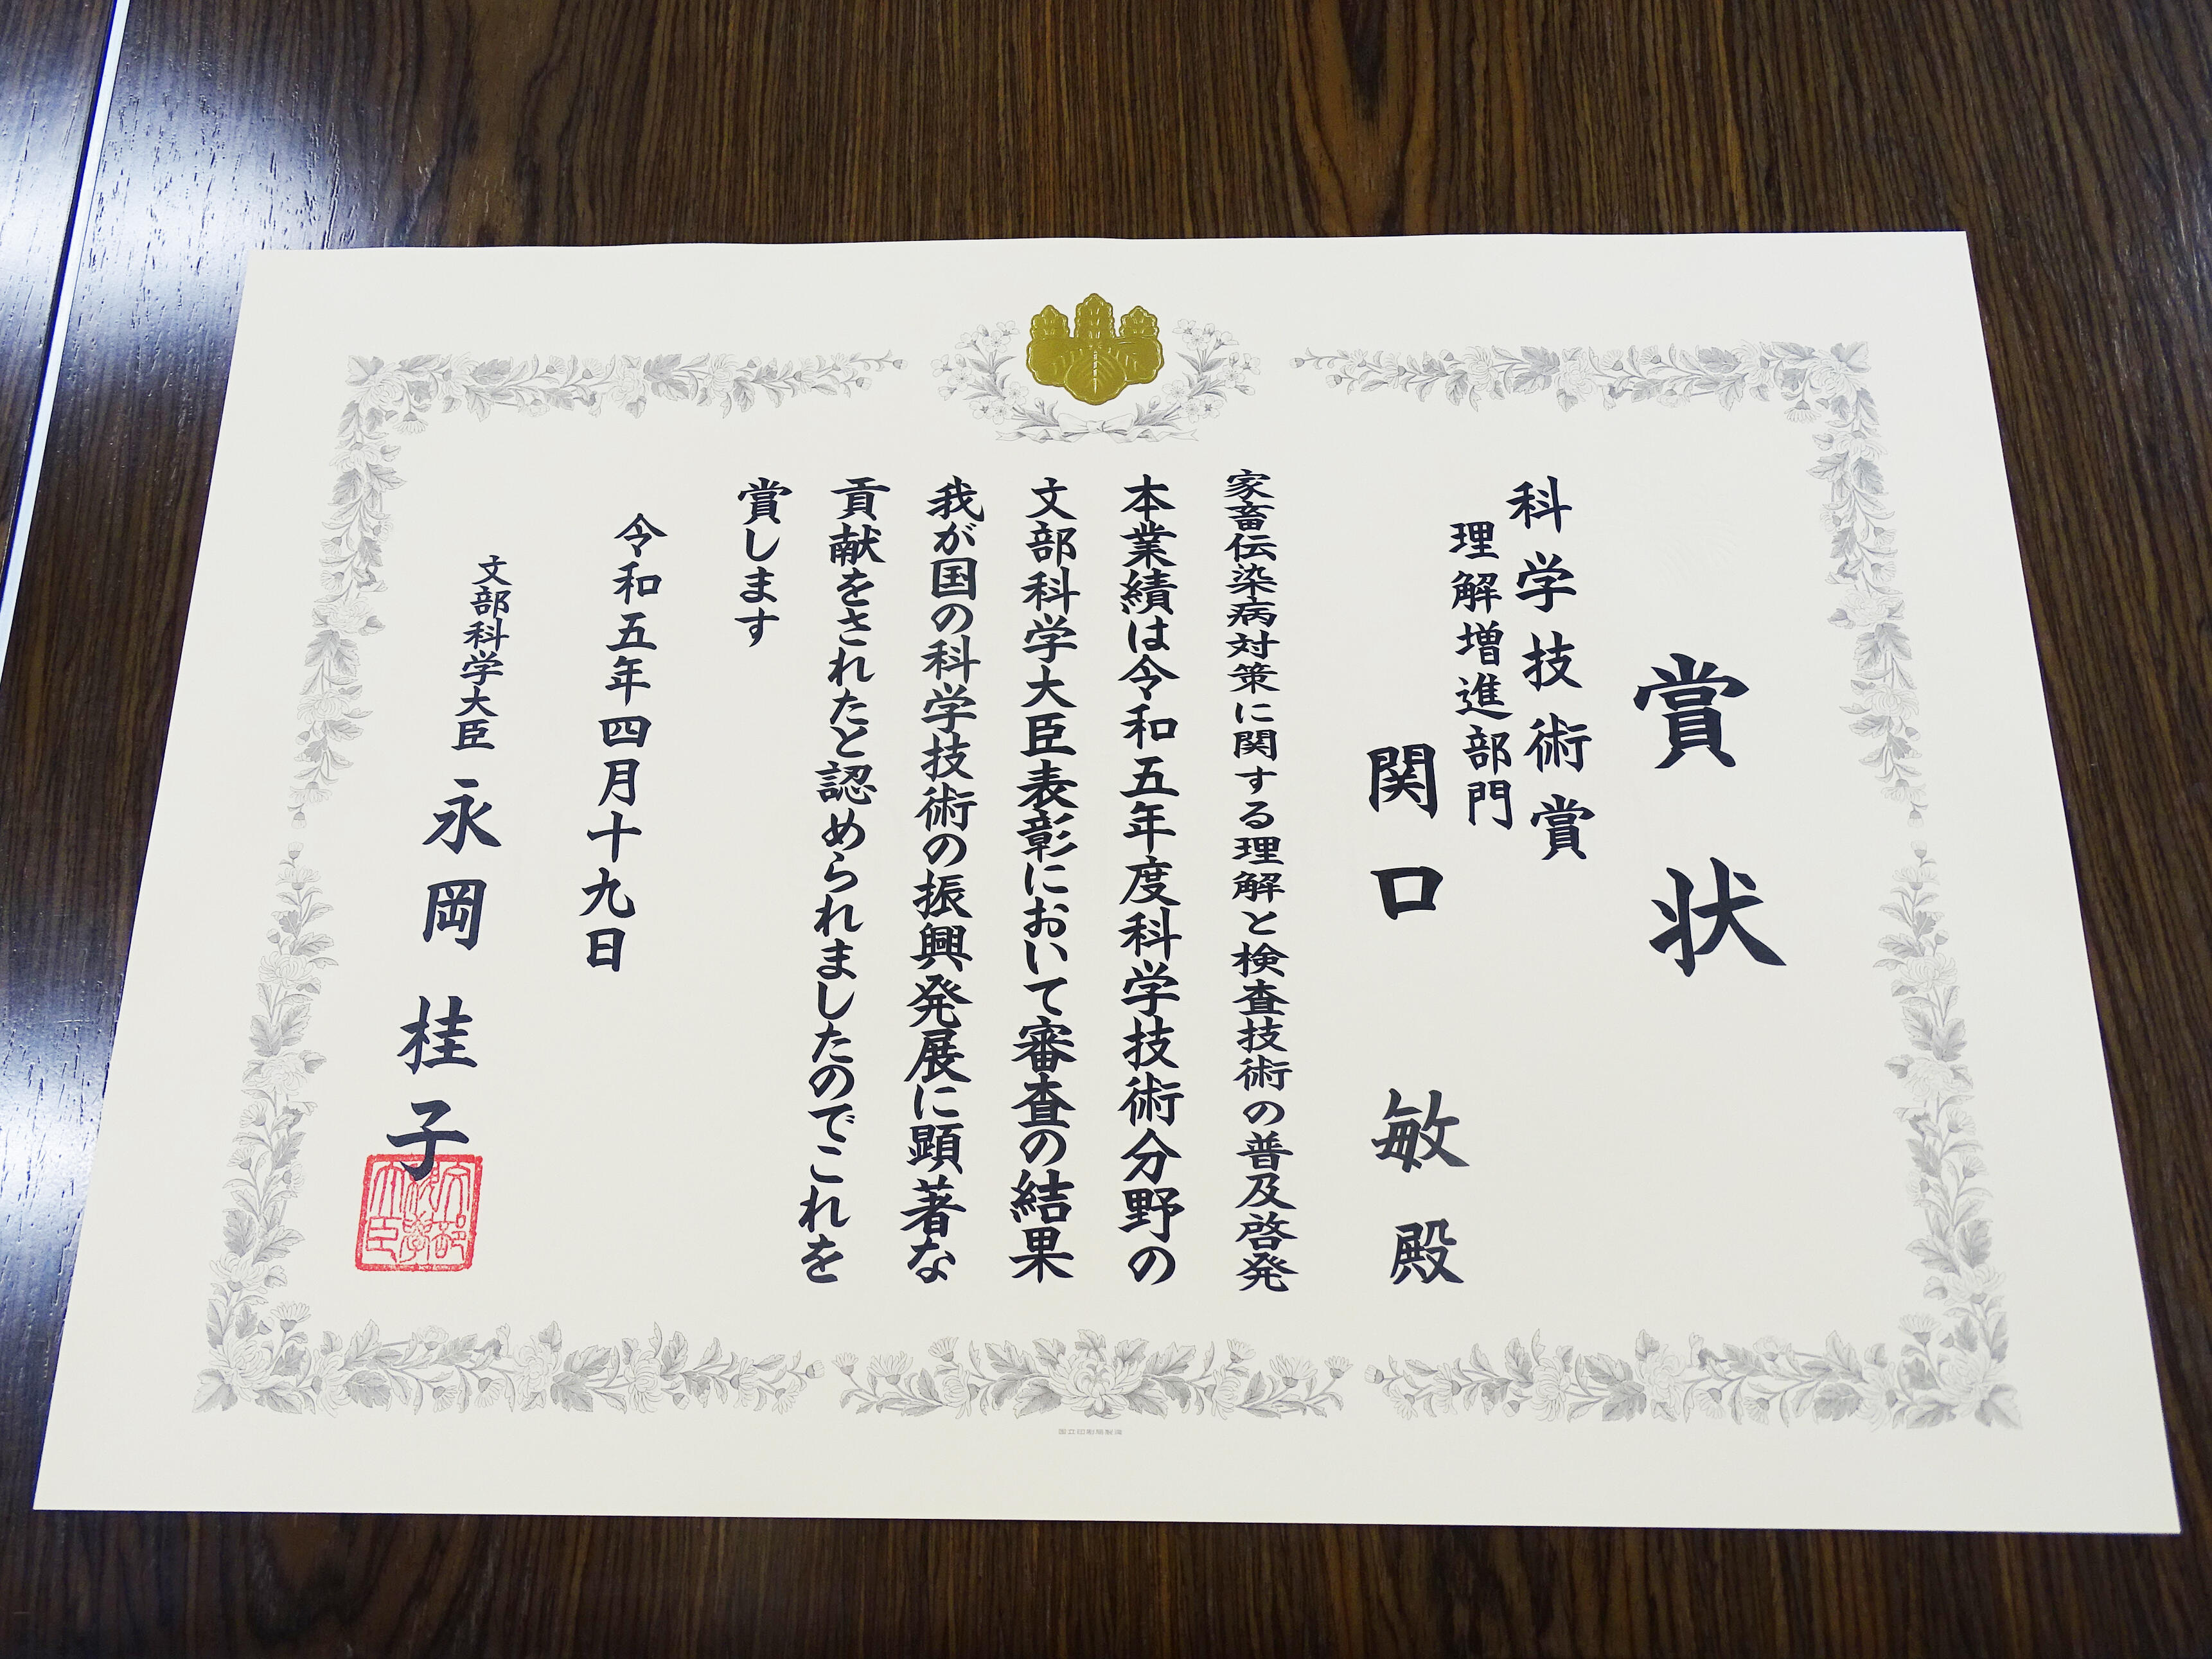 賞状
科学技術賞
理解増進部門
関口 敏 殿
家畜伝染病対策に関する理解と検査技術の普及啓発
本業績は令和五年度科学技術分野の
文部科学大臣表彰において審査の結果
我が国の科学技術の振興発展に顕著な
貢献をされたと認められましたのでこれを
賞します
令和五年四月十九日
文部科学大臣 永岡 桂子
国立印刷局製造